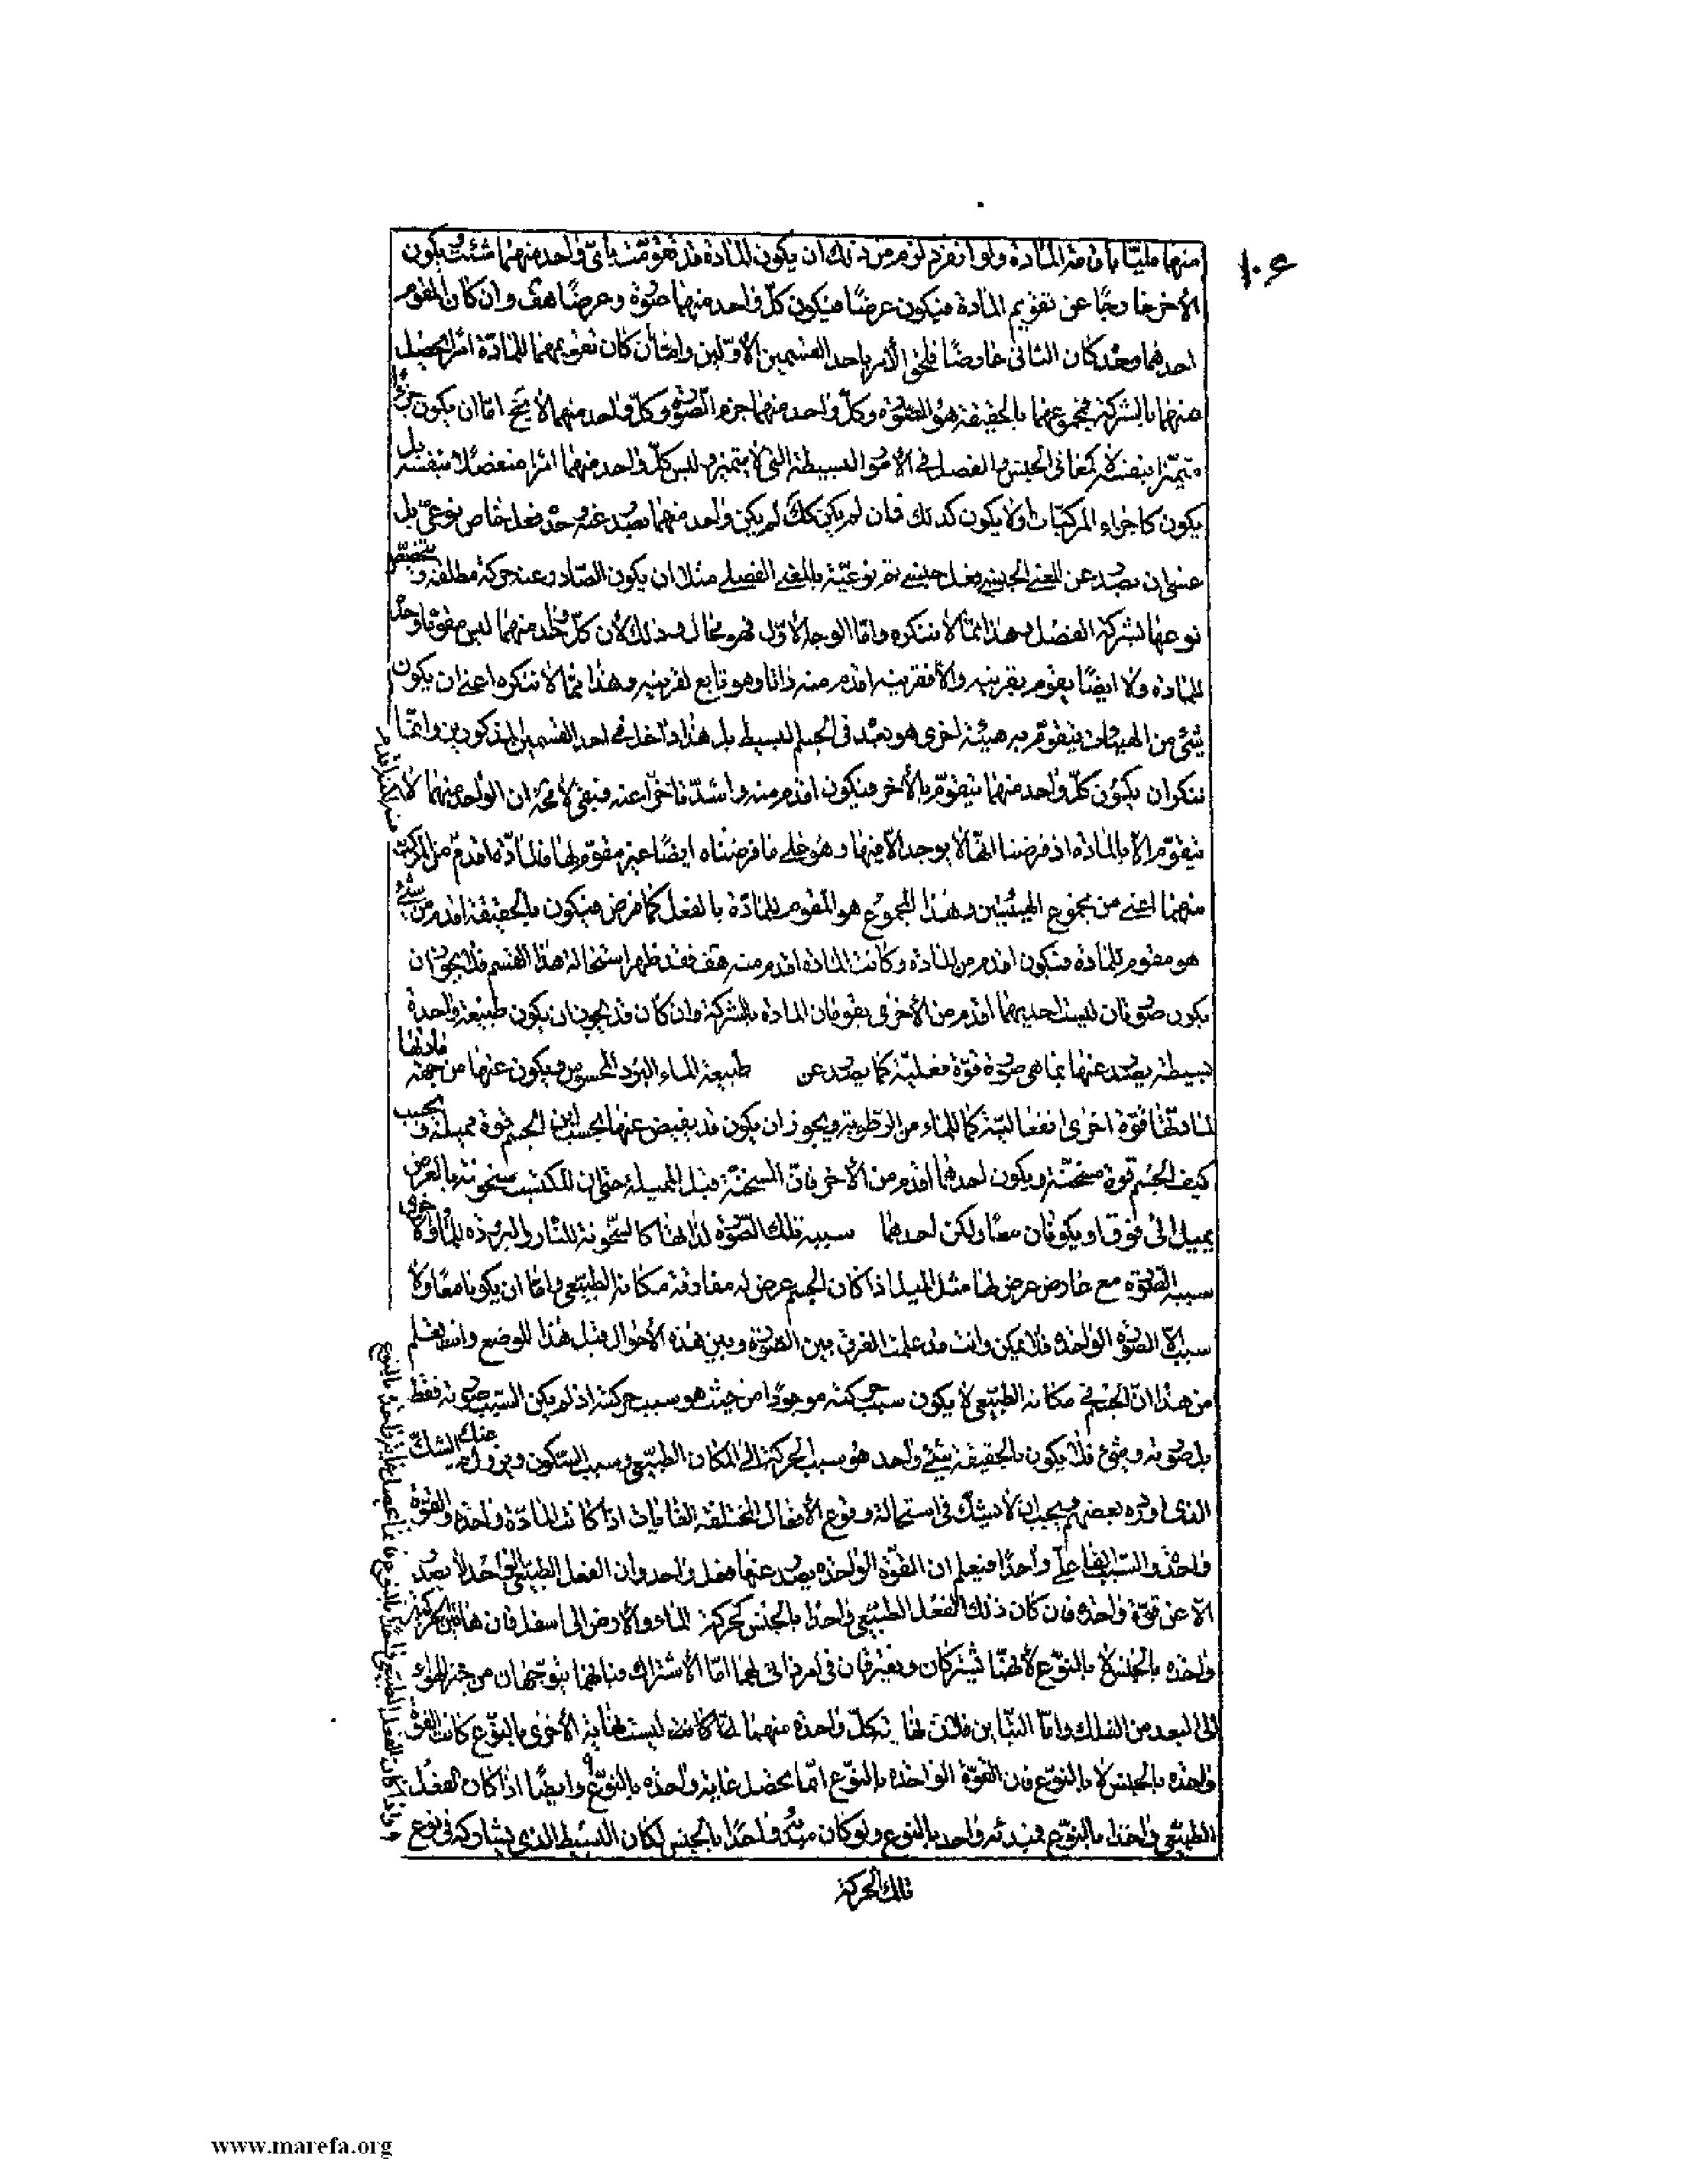 ١٠۶
منهما مليّا باقامة المادة ولو انفرد لزم من ذلك ان يكون المادة قد تقومت بأىّ واحد منهما شئت يكون
الأخر خارجًا عن تقويم المادة فيكون عرضًا فيكون كلّ واحد منهما صورة وعرضًا هف وان كان المقوم
احدهما بعد كان الثانى عارضًا فلحق الأمر باحد القسمين الأوّلين وايضا ان كان تقويمهما للمادّة امرا يحصل
منهما بالشركة فمجموعهما بالحقيقة هو الصّورة وكلّ واحد منهما جزء الصّورة وكلّ واحد منهما لا يخ امّا ان يكون جزءا
متميّزا بنفسه لا كمعانى الجنس والفصل فى الأمور البسيطة التى لا يتميز وليس كلّ واحد منهما امرا منفصلا بنفسه بل
يكون كاجزاء المركبات اولا يكون كذلك فان لم يكن كك لم يكن واحد منهما يصدر عنه وحده فعل خاص نوعىّ بل
عسى ان يصدر عن المعنى الجنسى فعل جنسى يتم نوعيّته بالمعنى الفصلى مثلا ان يكون الصادر عنه حركة مطلقة ويتخصّص
نوعها بشركة الفصل وهذا ممّا لا ننكره وامّا الوجه الأوّل فهو محال وذلك لأن كلّ واحد منهما ليس مقومًا وحده
للمادة ولا ايضًا يقوم بقرينه والّا فقرينه اقدم منه ذاتا وهو تابع لقرينه وهذا ممّا لا ننكره اعنى ان يكون
شئ من الهيئات يتقوّم به هيئة اخرى هو بعد فى الجسم البسيط بل هذا داخل فى احد القسمين المذكورين وانما
ننكر ان يكون كلّ واحد منهما يتقوّم بالأخر فيكون اقدم منه واشدّ تاخّرا عنه فبقى لا محة ان الواحد منهما لا
يتقوّم الّا بالمادة اذ فرضنا انّها لا يوجد الّا فيها وهو على ما فرضناه ايضًا غير مقوّم لها فالمادّة اقدم من المركب
منهما اعنى من مجموع الهيئتين وهذا المجموع هو المقوم للمادّة بالفعل كما فرض فيكون بالحقيقة اقدم من شئ
هو مقوم للمادة فيكون اقدم من المادة وكانت المادة اقدم منه هف فقد ظهر استحالة هذا القسم فلا يجوز ان
يكون صورتان ليست احديهما اقدم من الأخرى يقومان المادة بالشركة وان كان قد يجوز ان يكون طبيعة واحدة
بسيطة يصدر عنها بما هى صورة قوّة فعليّة كما يصدر عن طبيعة الماء البرد المحسوس ويكون عنها من جهة مادتها
لمادتها قوّة اخرى انفعاليّة كما للماء من الرطوبة ويجوز ان يكون قد يفيض عنها بحسب اين الجسم قوة مميلة وبحسب
كيف الجسم قوة مسخنة ويكون احدهما اقدم من الأخر فانّ المسخنة قبل المميلة حتى ان المكتسب سخونة بالعرض
يميل الى فوق او يكونان معا ولكن احدهما سببه تلك الصّورة لذاتها كالسّخونة للنار والبرودة للماء والأخرى
سببه الصّورة مع عارض عرض لها مثل الميل اذا كان الجسم عرض له مفارقة مكانه الطبيعى وامّا ان يكونا معًا ولا
سبب الّا الصّورة الواحدة فلا يمكن وانت قد علمت الفرق بين الصّورة وبين هذه الأحوال قبل هذا الموضع وانت تعلم
من هذا انّ الجسم فى مكانه الطبيّعى لا يكون سبب حركته موجودًا من حيث هو سبب حركته اذ لم يكن السّبب صورته فقط
بل صورته وشئ فلا يكون بالحقيقة شئ واحد هو سبب الحركة الى المكان الطبيّعى وسبب السّكون ويزول عنك الشكّ
الذى اورده بعضهم ويجب ان لا نشكّ فى استحالة وقوع الأفعال المختلفة الغايات اذا كانت المادّة واحدة والقوّة
واحدة والسّبب الفاعلى واحدًا فيعلم ان القوّة الواحدة يصدر عنها فعل واحد وان الفعل الطبيّعى الواحد لا يصدر
الّا عن قوّة واحدة فان كان ذلك الفعل الطبيّعى واحدًا بالجنس كحركة الماء والأرض الى اسفل فان هاتين الحركتين
واحدة بالجنس لا بالنوّع لأنهمّا تشتركان ويفترقان فى امر ذاتى لهما امّا الأشتراك فبانهما يتوجّهان من حيز الهواء
الى البعد من الفلك وامّا التباين فلانّ غاية كلّ واحدة منهما لمّا كانت ليست غاية الأخرى بالنوّع كانت القوّة
واحدة بالجنس لا بالنوّع فان القوّة الواحدة بالنوّع امّا يحصل غاية واحدة بالنوّع وايضًا اذا كان الفعل
الطبيّعى واحدا بالنوّع فمبدئه واحد بالنوع ولو كان مبدؤه واحدًا بالجنس لكان البسيط الذى يشاركه فى نوع
تلك الحركة
www.marefa.org